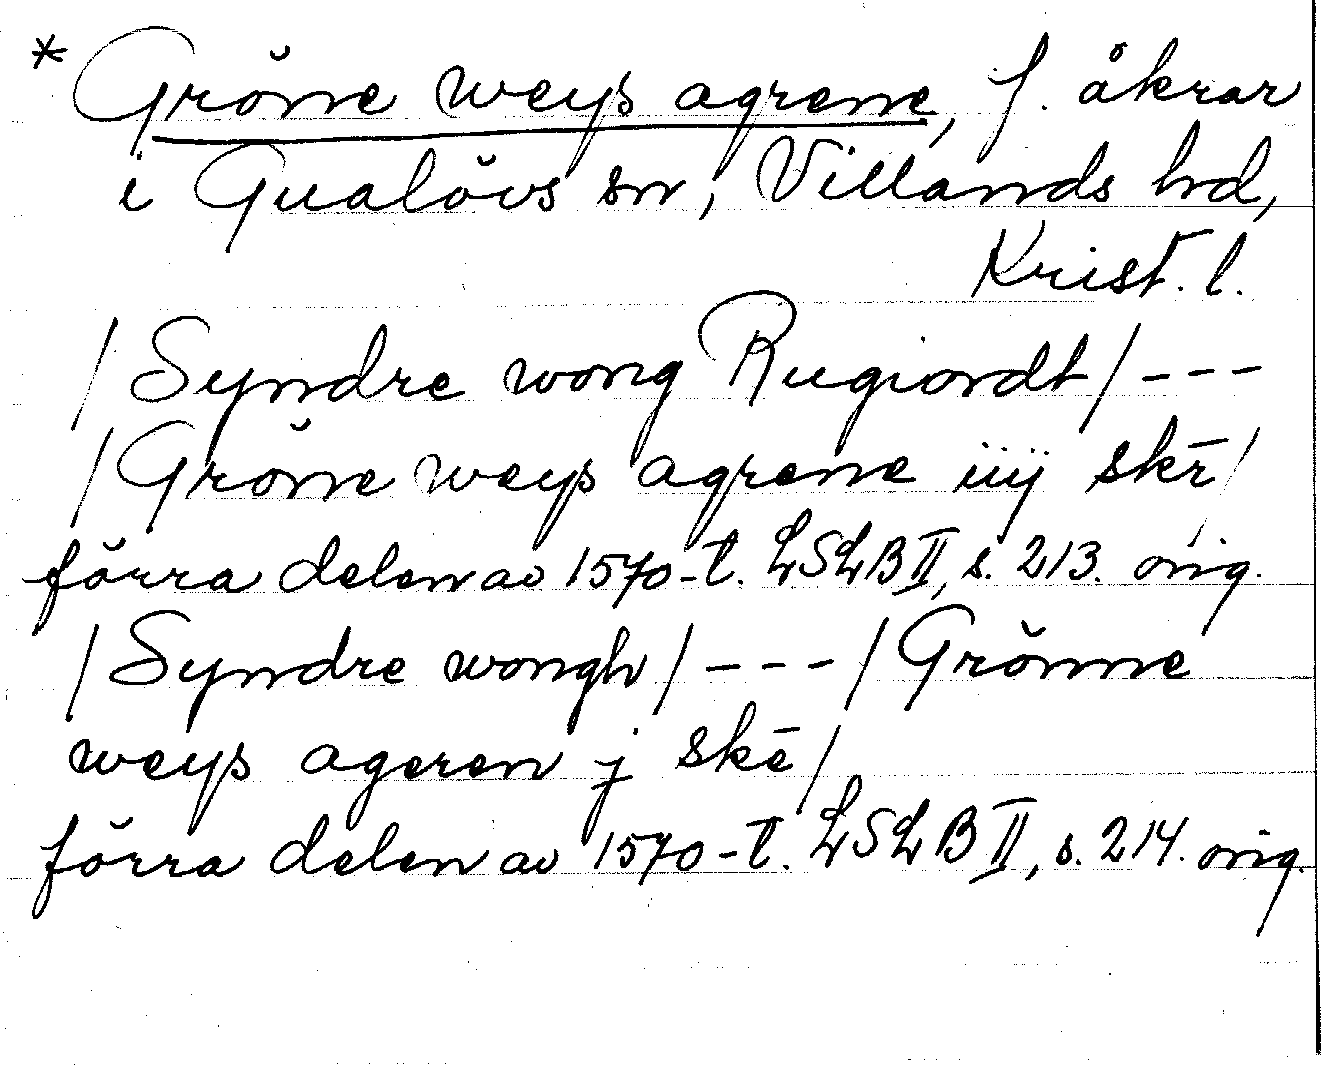 * Gröne weys agrene, f. åkrar
i Gualövs sn, Villands hd,
Krist. l.
/Syndre wong Rugiordt/---
/Gröne weys agrene iiij skr̄/
förra delen av 1570-t. LSLB II, s. 213. orig.
/Syndre wongh/---/Grönne
weys ageren j skē/
förra delen av 1570-t. LSLB II, s. 214. orig.